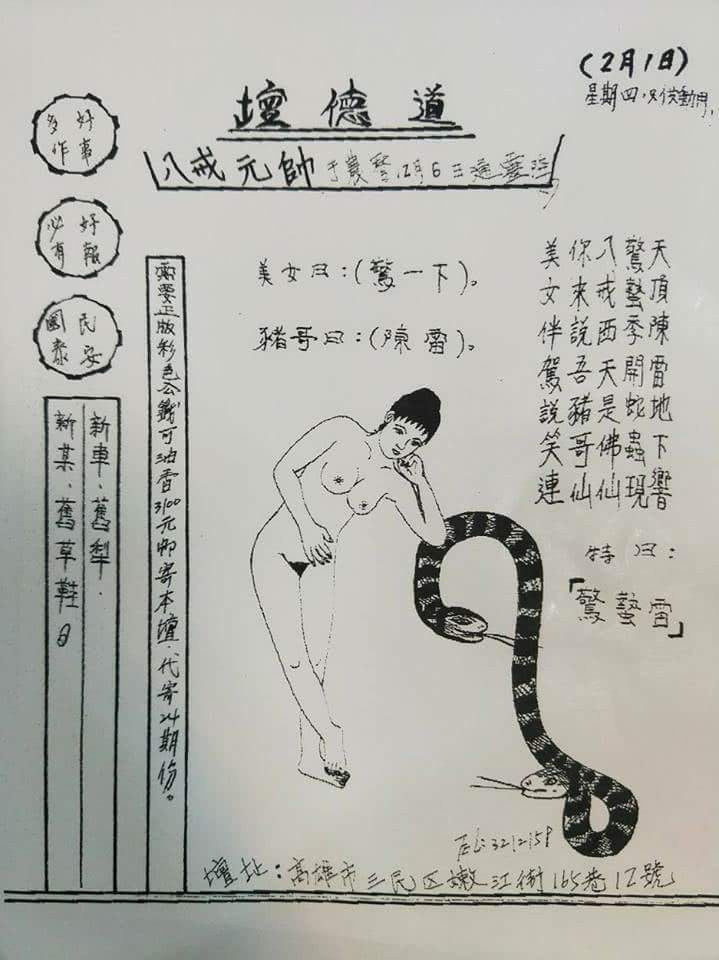 (2月1日)
星期四
道德壇
八戒元帥
農曆12月6日
好事
多作
好報
必有
民安
國泰
新車、舊犁。
新某、舊草鞋。
需要正版彩色公籤可油香3100元郵寄本壇、代寄24期份。
美女曰：(驚一下)。
豬哥曰：(陳雷)。
天頂陳雷地下響
驚蟄季開蛇蟲現
八戒西天是佛仙
你來說吾豬哥仙
美女伴駕說笑連
特曰：
「驚蟄雷」
壇址：高雄市三民區嫩江街165巷12號